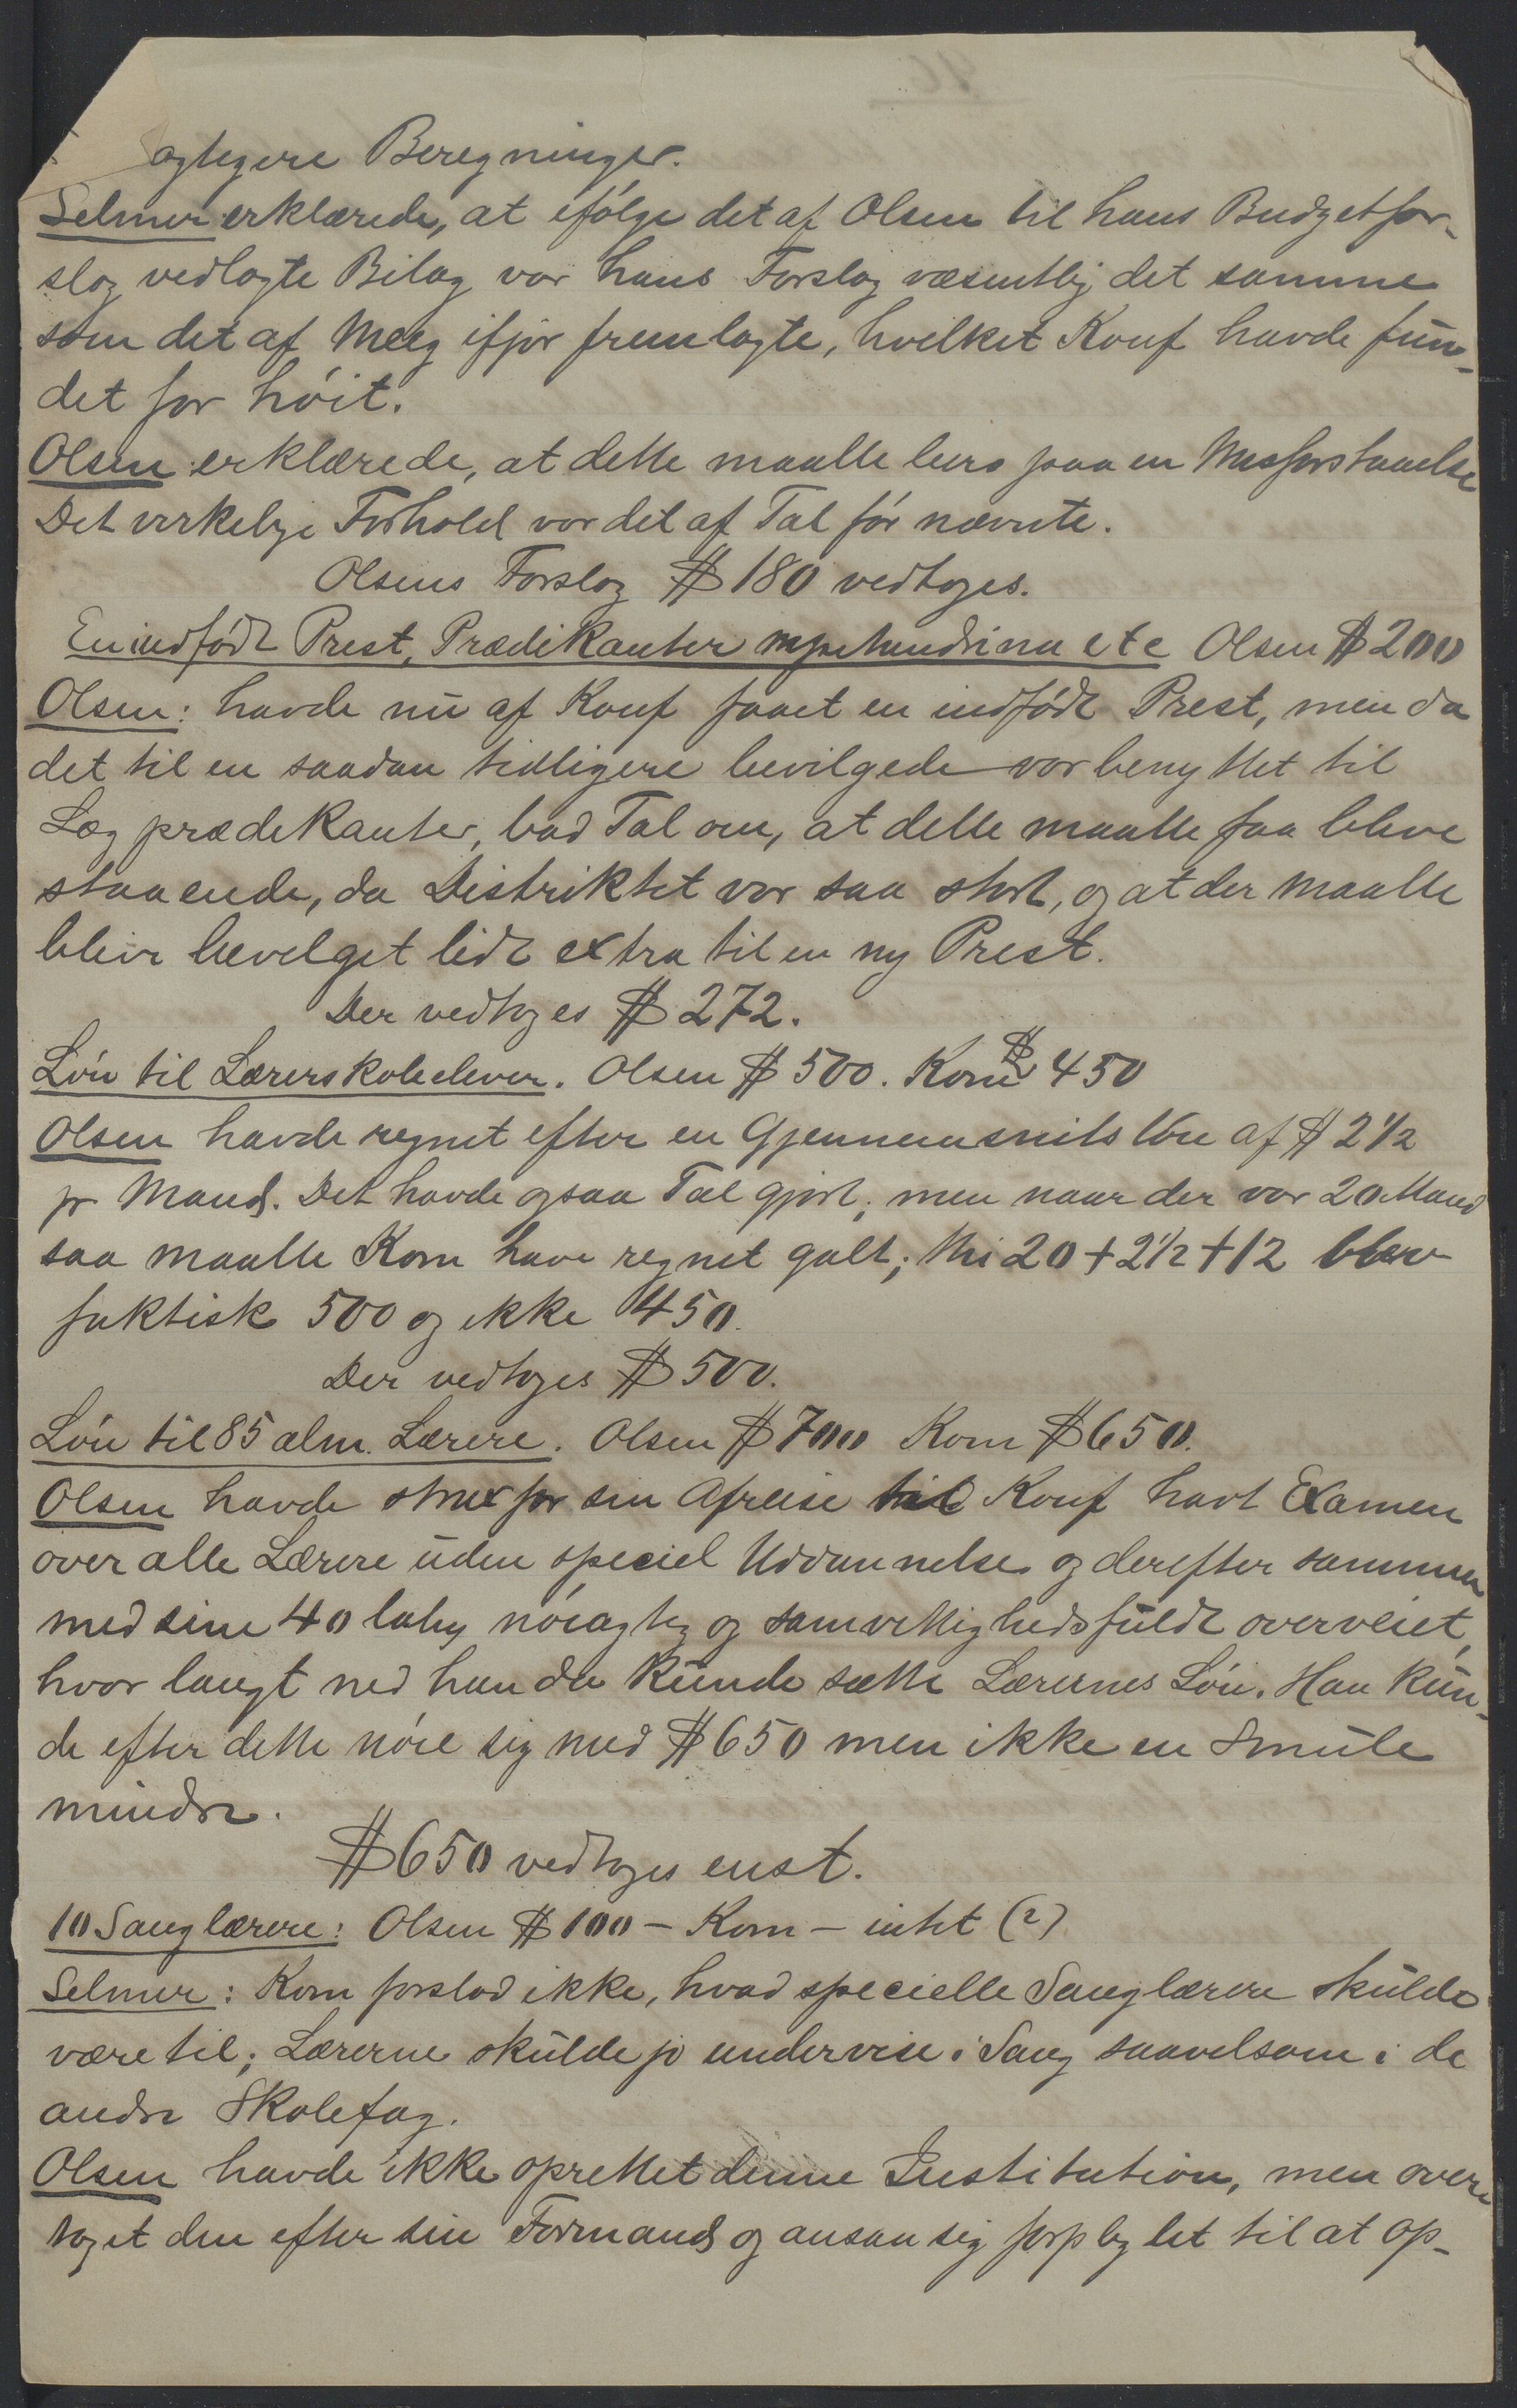 agtigere Beregninger.
Selmer erklærede, at ifølge det af Olsen til hans Budgetfor-
slag vedlagte Bilag var hans Forslag væsentlig det samme
som det af Meeg ifjor fremlagte, hvilket Konf havde fun-
det for høit.
Olsen erklærede, at dette maatte bero paa en Misforstaaelse
Det virkelige Forhold var det af Tal før nævnte.
Olsens Forslag $ 180 vedtoges.
En indfødt Prest, Prædikanter mpitandrina etc Olsen $ 200
Olsen: havde nu af Konf faaet en indfødt Prest, men da
det til en saadan tidligere bevilgede var benyttet til
Lægprædekanter, bad Tal om, at dette maatte faa blive
staaende, da Distriktet var saa stort, og at der maatte
blive bevilget lidt extra til en ny Prest.
Der vedtoges $ 272.
Løn til Lærerskoleelever. Olsen $ 500. Kom $ 450
Olsen havde regnet efter en Gjennemsnitsløn af $ 2 1/2
pr Maned. Det havde ogsaa Tal gjort; men naar der var 20 Mand
saa maatte Kom have regnet galt; thi 20 + 2 1/2 + 12 blev
faktisk 500 og ikke 450.
Der vedtoges $ 500.
Løn til 85 alm. Lærere. Olsen $ 700 Kom $ 650.
Olsen havde strax før sin Afreise til Konf havt Examen
over alle Lærere uden speciel Uddannelse og derefter sammen
med sine 40 lahy nøiagtig og samvittighedsfuldt overveiet,
hvor langt ned han da kunde sætte Lærernes Løn. Han kun-
de efter dette nøie sig med $ 650 men ikke en Smule
mindre.
$ 650 vedtoges enst.
10 Sanglærere: Olsen $ 100 – Kom – intet (?)
Selmer: Kom forstod ikke, hvad specielle Sanglærere skulde
være til; Lærerne skulde jo undervise i Sang saavelsom i de
andre Skolefag.
Olsen havde ikke oprettet denne Institution, men over-
taget den efter sin Formand og ansaa sig forpligtet til at op-